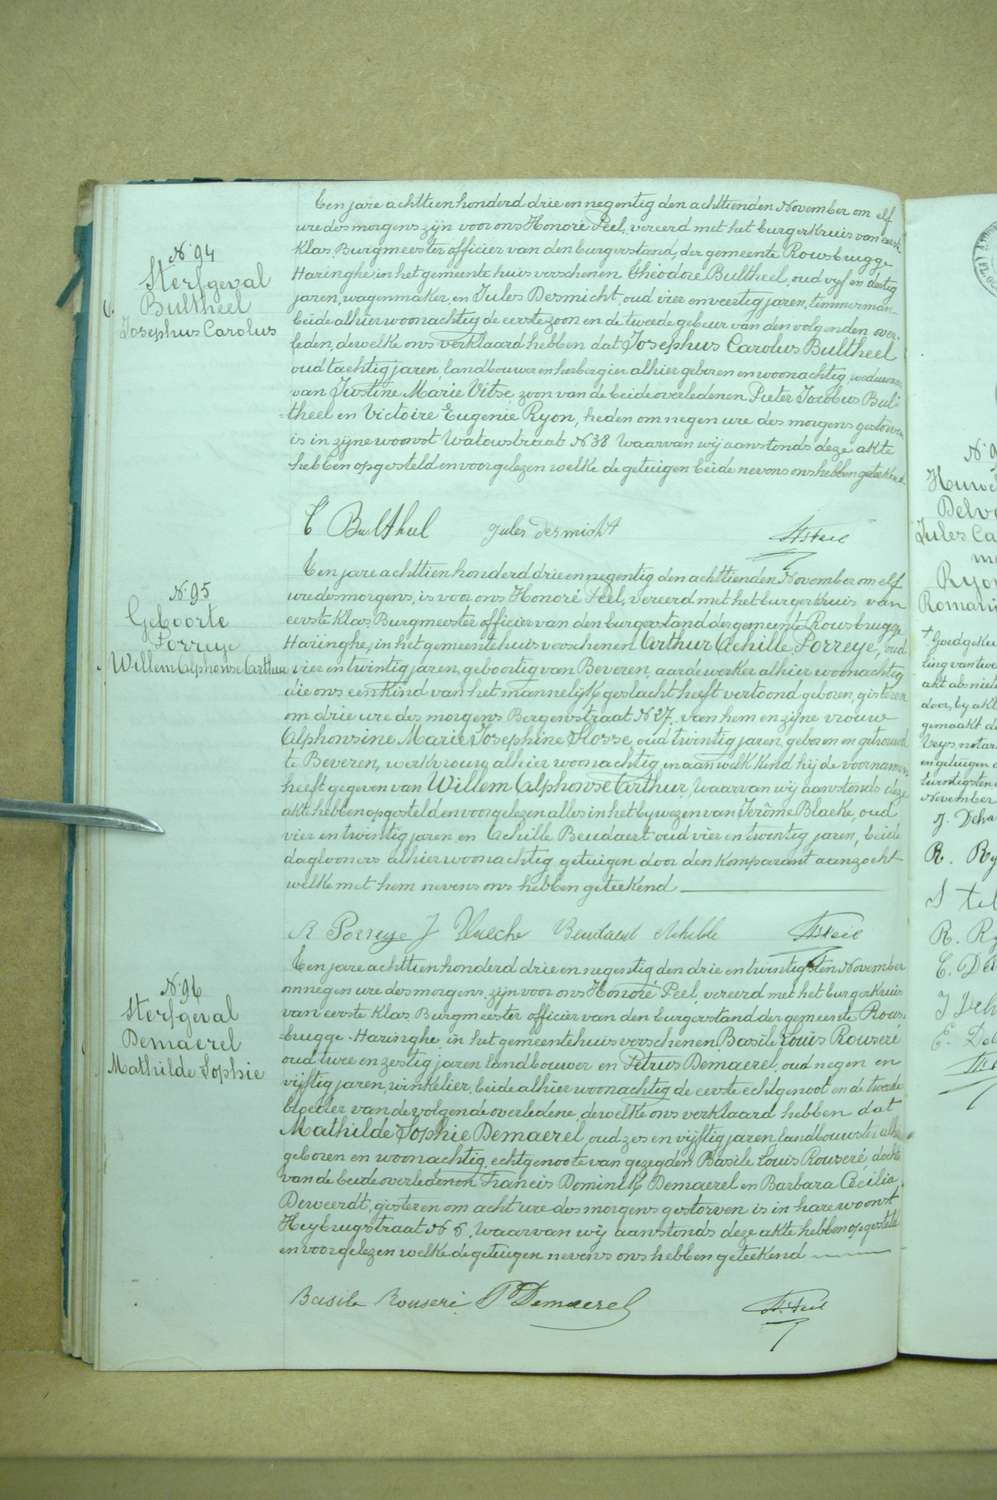 N° 94
Sterfgeval
Bultheel
Josephus Carolus
Een jare achttien honderd drie en negentig den achttienden November om elf
ure des morgens zijn voor ons Honoré Peel, vereerd met het burgerkruis van eerste
klas, Burgmeester officier van den burgerstand, der gemeente Rousbrugge
Haringhe, in het gemeentehuis verschenen Théodore Bultheel, oud vijf en dertig
jaren, wagenmaker, en Jules Desmicht, oud vier en veertig jaren, timmerman
beide alhier woonachtig de eerste zoon en de tweede gebeur van den volgenden over-
leden, dewelke ons verklaard hebben dat Josephus Carolus Bultheel
oud tachtig jaren, landbouwer en herbergier alhier geboren en woonachtig, weduwnaar
van Justine Marie Vitse, zoon van de beide overledenen Pieter Jacobus Bul-
theel en Victoire Eugenie Ryon, heden om negen ure des morgens gestorven
is in zijne woonst Watowstraat N° 38 Waarvan wij aanstonds deze akte
hebben opgesteld en voorgelezen welke de getuigen beide nevens ons hebben geteekend.
T Bultheel Jules desmicht H. Peel
N° 95
Geboorte
Porreye
Willem Alphonse Arthur
Een jare achttien honderd drie en negentig den achttienden November om elf
ure des morgens, is voor ons Honoré Peel, vereerd met het burgerkruis van
eerste klas Burgmeester officier van den burgerstand der gemeente Rousbrugge
Haringhe, in het gemeentehuis verschenen Arthur Achille Porreye, oud
vier en twintig jaren, geboortig van Beveren, aardewerker alhier woonachtig
die ons een kind van het mannelijk geslacht heeft vertoond geboren, gisteren
om drie ure des morgens Bergenstraat N° 27, van hem en zijne vrouw
Alphonsine Marie Josephine Flosse, oud twintig jaren, geboren en getrouwd
te Beveren, werkvrouw alhier woonachtig, en aan welk kind hij de voornamen
heeft gegeven van Willem Alphonse Arthur, Waarvan wij aanstonds deze
akte hebben opgesteld en voorgelezen alles in het bijwezen van Jerôme Blaeke, oud
vier en twintig jaren, en Achille Beudaert oud vier en twintig jaren, beide
daglooners alhier woonachtig getuigen door den komparant aanzocht
welke met hem nevens ons hebben geteekend
A Porreye J Beudaert Achille H. Peel
N° 96
Sterfgeval
Demaerel
Mathilde Sophie
Een jare achttien honderd drie en negentig den drie en twintigsten November
om negen ure des morgens, zijn voor ons Honoré Peel, vereerd met het burgerkruis
van eerste klas, Burgmeester officier van den burgerstand der gemeente Rous-
brugge Haringhe, in het gemeentehuis verschenen Basile Louis Rouseré
oud twee en zestig jaren landbouwer en Petrus Demaerel, oud negen en
vijftig jaren, winkelier, beide alhier woonachtig de eerste echtgenoot en de tweede
bloeder van de volgende overledene, dewelke ons verklaard hebben dat
Mathilde Sophie Demaerel, oud zes en vijftig jaren landbouwster alhier
geboren en woonachtig, echtgenoote van gezegden Basile Louis Rouseré dochter
van de beide overledenen Francis Dominik Demaerel en Barbara Cécilia
Deweerdt, gisteren om acht ure des morgens gestorven is in hare woonst
Heybrugstraat N° 6, Waarvan wij aanstonds deze akte hebben opgesteld
en voorgelezen welke de getuigen nevens ons hebben geteekend
Basile Rouseré P Demaerel H. Peel